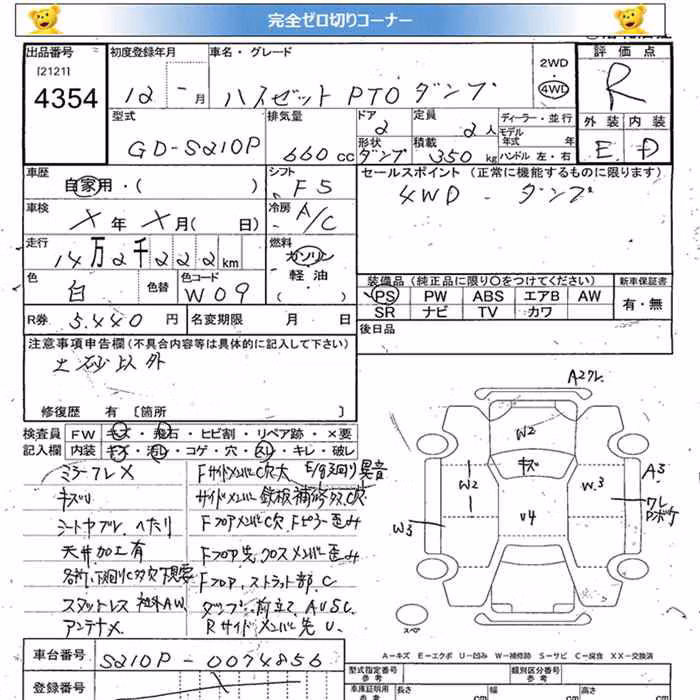 完全ゼロ切りコーナー
出品番号 初度登録年月 車名・グレード 評価点
[2121] 2WD
4354 12 - 月 ハイゼット PTO ダンプ 4WD R
型式 排気量 ドア 定員 ディーラー・並行 外装 内装
2 2人 モデル年式 年
GD-S210P 660cc 形状 ダンプ 積載 350kg ハンドル 左・右 E D
車歴 シフト セールスポイント (正常に機能するものに限ります)
自家用・( ) F5 4WD - ダンプ
車検 冷房
X 年 X 月( 日) A/C
走行 燃料
14万2千222km ガソリン
色 色替 色コード 軽油
白 W09 ( )
装備品 (純正品に限り〇をつけてください) 新車保証書
PS PW ABS エアB AW 有・無
SR ナビ TV カワ
R券 5.440 円 名変期限 月 日 後日品
注意事項申告欄 (不具合内容等は具体的に記入して下さい)
土砂以外
修復歴 有 [箇所 ]
検査員 FW キズ・飛石・ヒビ割・リペア跡・×要
記入欄 内装 キズ・汚レ・コゲ・穴・スレ・キレ・破レ
ミラーフレX FサイドメンバーC穴大 E/g3回り異音
キズU サイドメンバー 鉄板補修タスC穴
シートヤブレ、へたり FフロアメンバーC穴 Fピラー歪み
天井加工有 Fフロア先、クロスメンバー歪み
各所、下回りC力穴下見要 Fフロア、ストラット部.C
スタットレス 社外AW. ダンプ、前立て、AUSC.
アンテナX. Rサイドメンバー先 U.
A2クレ.
W2
キズ
W2 W.3 A3
ワレ
Pボケ
W3 V4
スペア
A-キズ E-エクボ U-凹み W-補修跡 S-サビ C-腐食 XX-交換済
車台番号 S210P-0074856
登録番号
型式指定番号 参考 類別区分番号 参考
車庫証明用 参考 長さ cm 幅 cm 高さ cm